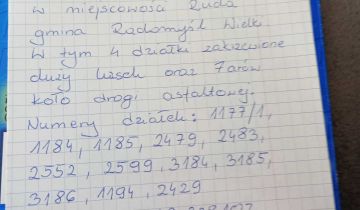 w miejscowości Ruda
gmina Radomyśl Wielki
W tym 4 działki zakrzewione
duży lasek oraz 7 arów
koło drogi asfaltowej.
Numery działek: 1177/1,
1184, 1185, 2479, 2483,
2552, 2599, 3184, 3185,
3186, 1194, 2429